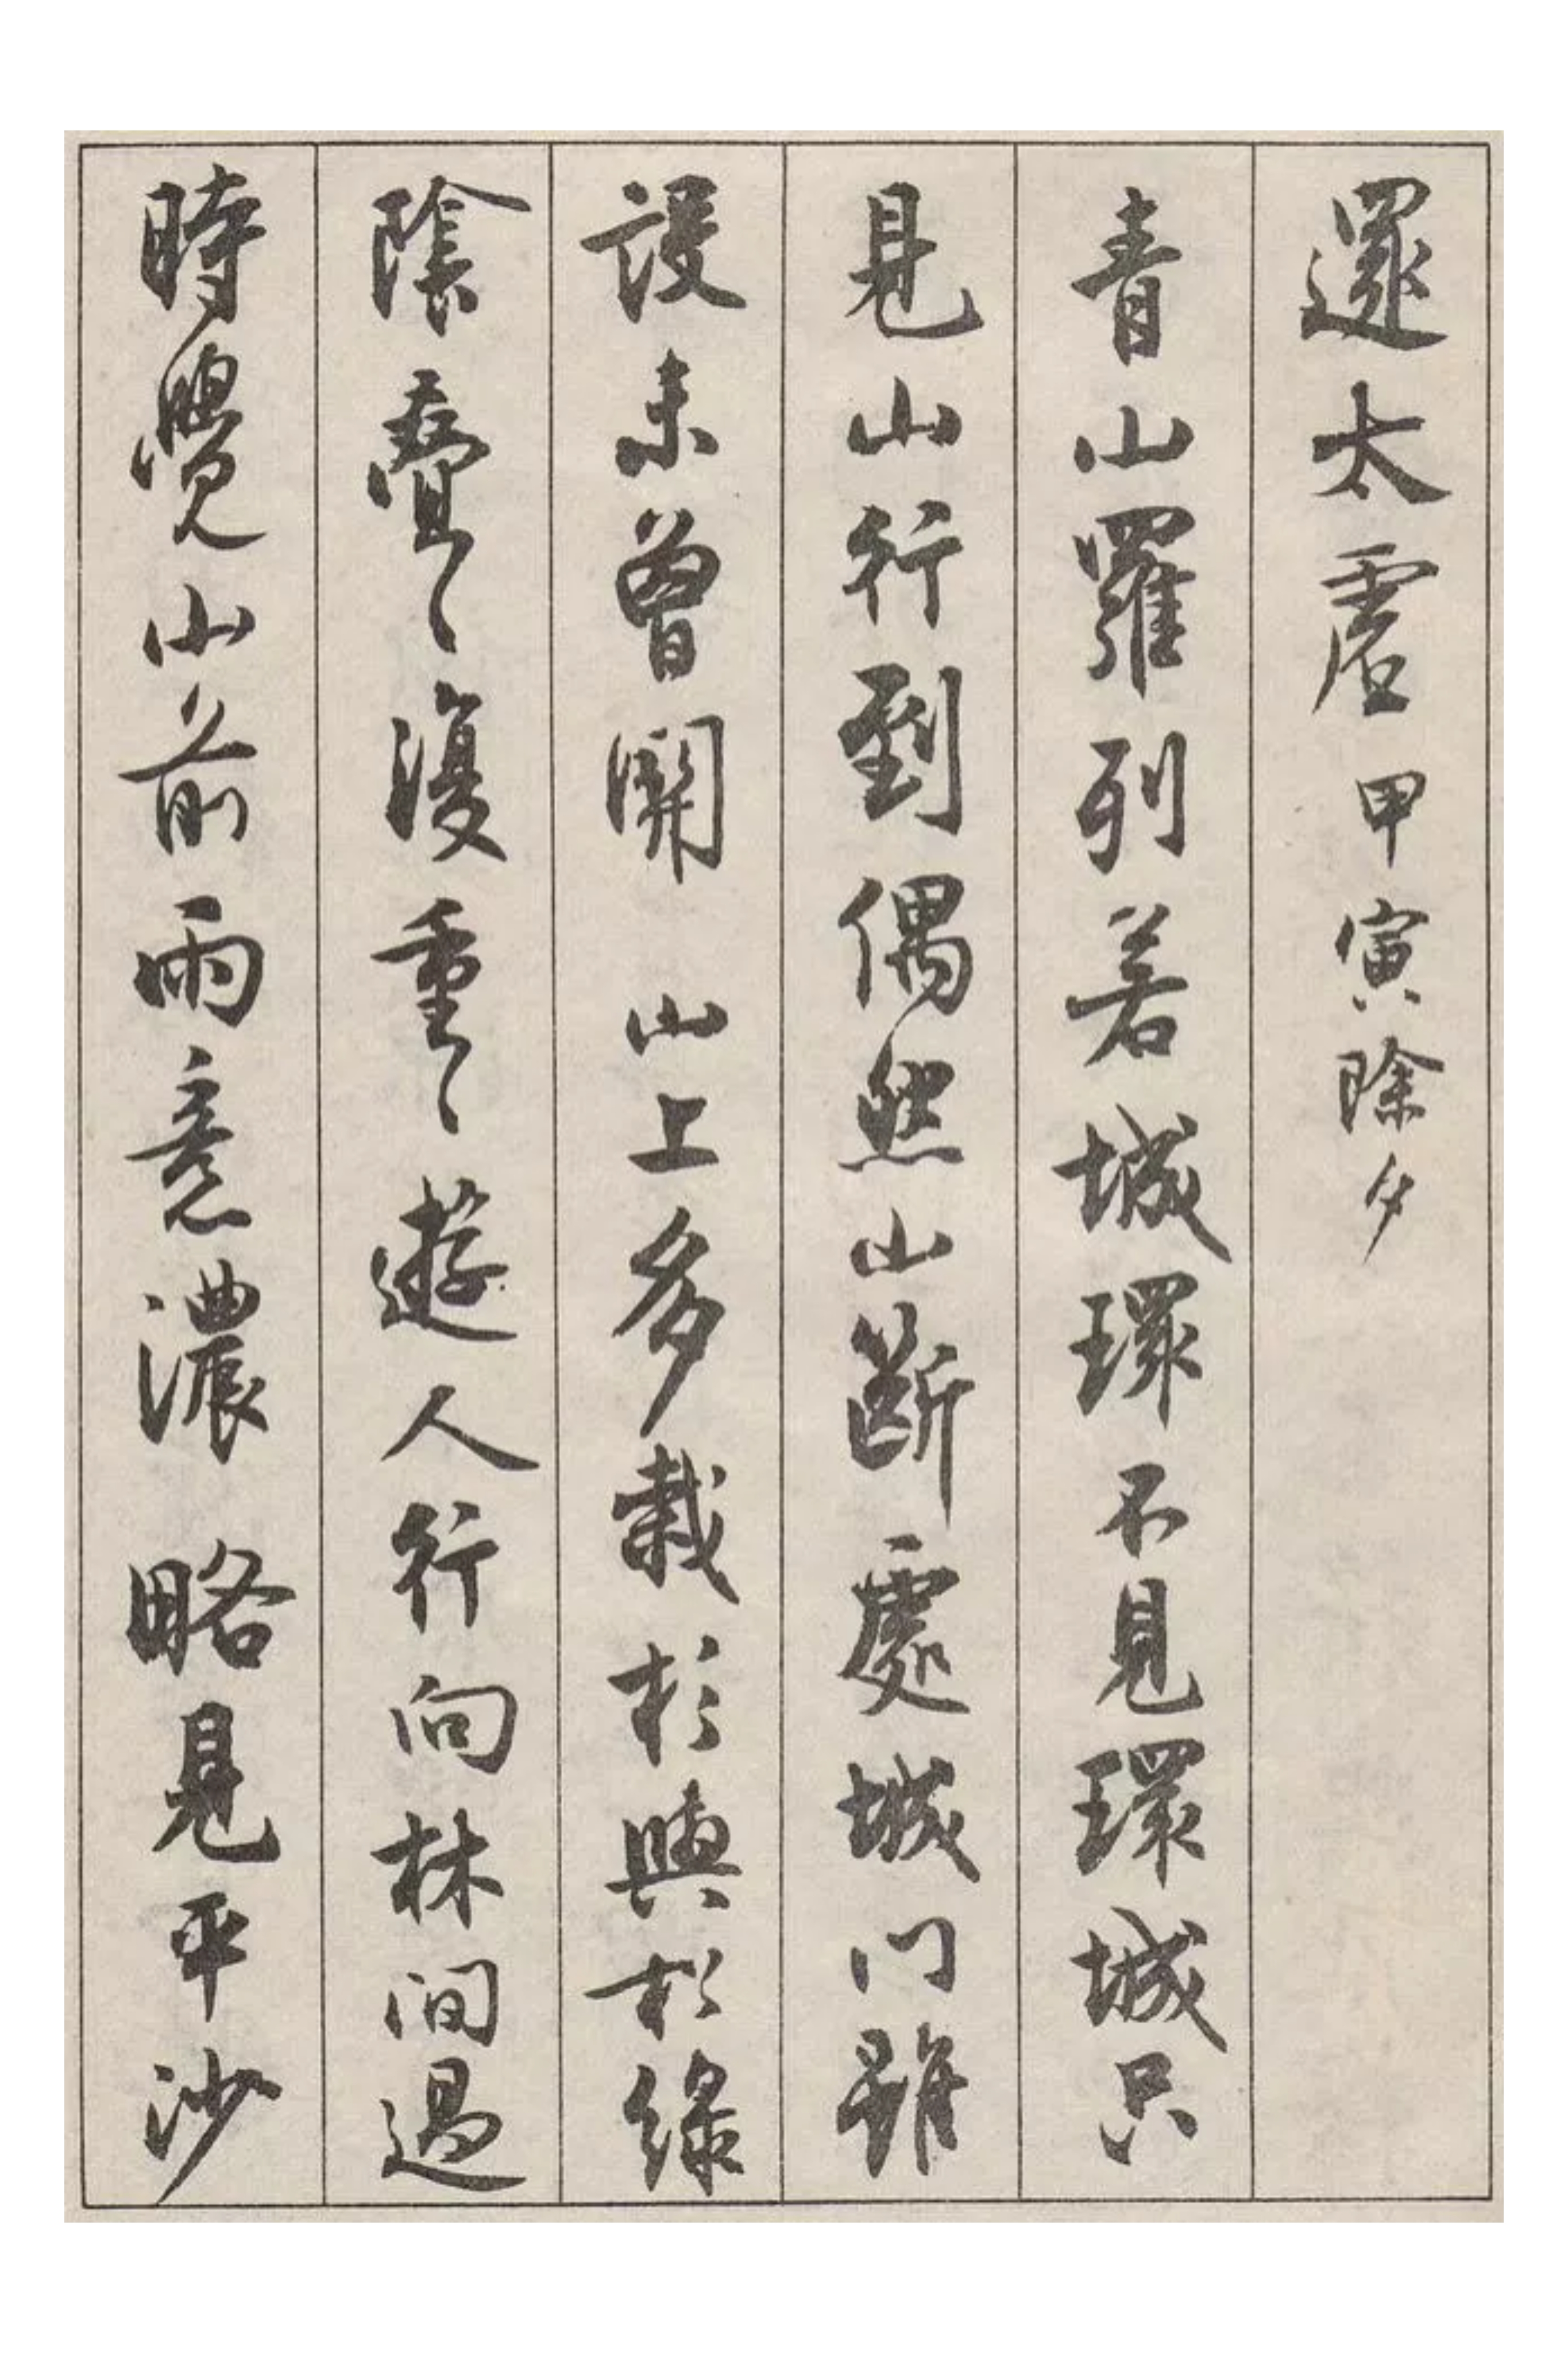 還太虛 甲寅除夕
青山羅列若城環不見環城只
見山行到偶然山斷處城門雖
設未曾開 山上多栽杉與松綠
陰疊疊復重重遊人行向林間過
時覺山前雨意濃 略見平沙